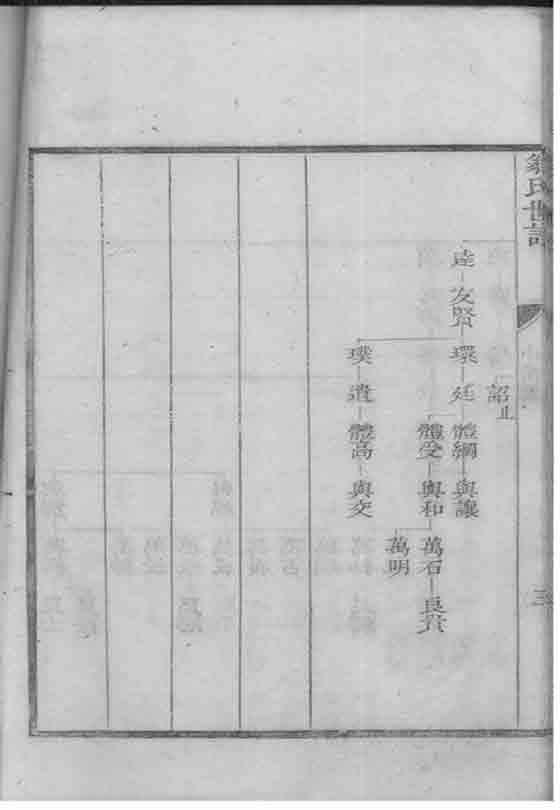 翁氏世譜
三
詔止
逵 友賢 環 廷 體綱 與讓
體受 與和 萬石 良貴
萬明
璞 遺 體高 與交